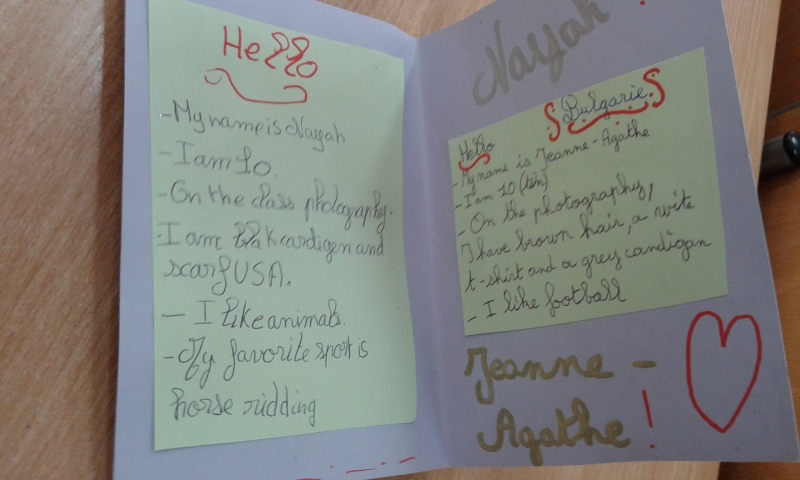 Hello
- My name is Nayah
- I am 10.
- On the class photography.
I am blak cardigen and
scarf USA.
- I like animals.
- My favorite sport is
horse ridding
Nayah
Bulgarie
Hello
- My name is Jeanne-Agathe
- I am 10 (ten)
- On the photography,
I have brown hair, a wite
t-shirt and a grey candigan
- I like football
Jeanne -
Agathe !